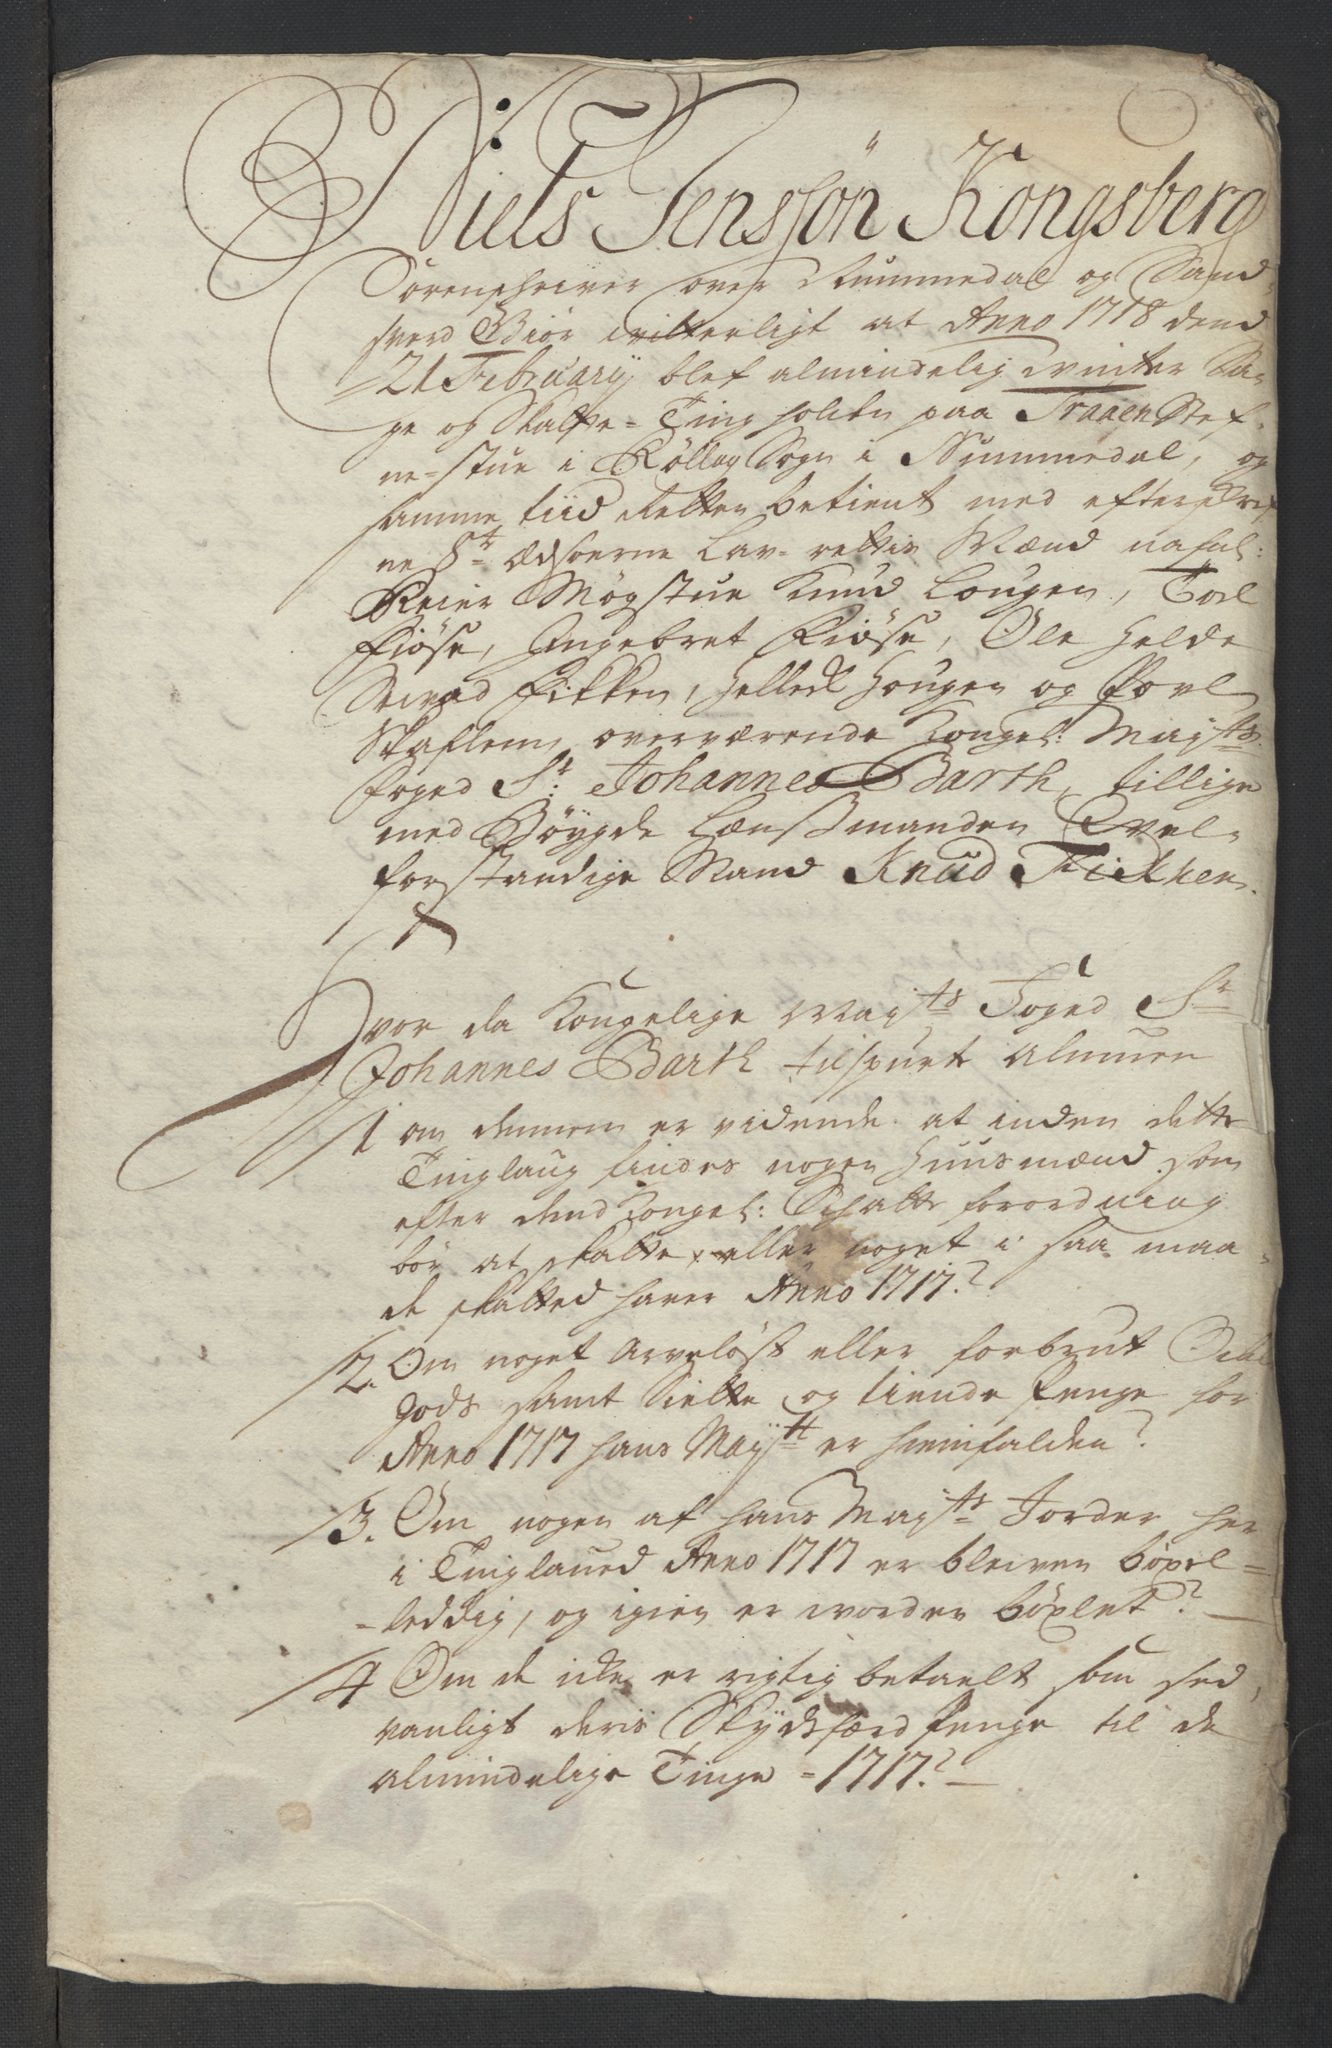 Niels Jenssön Kongsberg
Sorenschriver over Nummedal og Sand-
sverd Giör witterligt at Anno 1718 dend
21 February blef almindelig winter Sa-
ge og Skatte-Ting holden paa Traaen Stef-
ne-stue i Rollag Sogn i Nummedal, og
samme tiid Retten betient med efterskref
ne S^r Edsorne Lav-rettis Mænd nafnl:
Reier Mögstue Knud Lougen, Toel
Fiöse, Ingebret Fiöse, Ole Helde
Fikken, Hellech Hougen og Povl
Skaflem, overværende Kongel: Maj^ts
foged S^r: Johannes Barth, tillige
med Böygde Lænßmanden Evel-
forstandige Mand Knud Fikken.
Hvor da Kongelige Maj^ts Foged S^r
Johannes Barth tilspurte Almuen
1 om dennem er vidende at inden dette
Tinglaug findes nogen Huusmænd som
efter dend Kongel: Schatte forordning
bör at skatte, eller noget i saa maa-
de skatted haver Anno 1717?
2. Om noget Arvelöst eller forbrut Odel
gods samt Siette og tiende Penge for
Anno 1717 hans May^tt er hiemfalden?
3. Om nogen af hans Maj^ts Jorder her
i Tinglaued Anno 1717 er bleiven böxel-
-leddig, og igien er worden böxlet?
4 Om de icke er rigtig betaelt som sed,
vanligt deris Skydsfærd penge til de
almindelige Tinge - 1717?